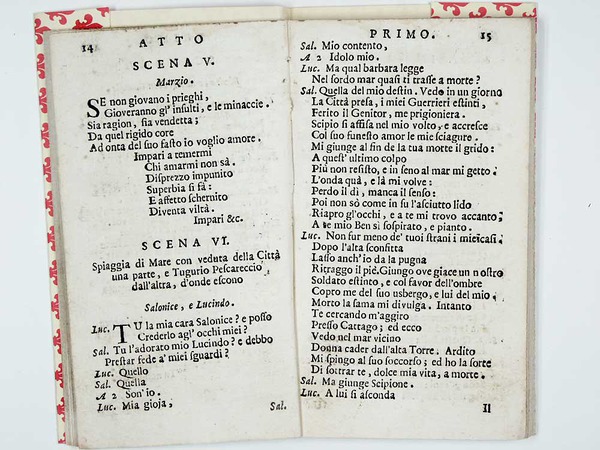 14
ATTO
SCENA V.
Marzio.
SE non giovano i prieghi,
Gioveranno gl' insulti, e le minaccie.
Sia ragion, sia vendetta;
Da quel rigido core
Ad onta del suo fasto io voglio amore.
Impari a temermi
Chi amarmi non sà.
Disprezzo impunito
Superbia si fà:
E affetto schernito
Diventa viltà.
Impari &c.
SCENA VI.
Spiaggia di Mare con veduta della Città
una parte, e Tugurio Pescareccio
dall'altra, d'onde escono
Salonice, e Lucindo.
Luc. TU la mia cara Salonice? e posso
Crederlo agl' occhi miei?
Sal. Tu l'adorato mio Lucindo? e debbo
Prestar fede a' miei sguardi?
Luc. Quello
Sal. Quella
A 2 Son'io.
Luc. Mia gioja,
Sal.
PRIMO.
15
Sal. Mio contento,
A 2 Idolo mio.
Luc. Ma qual barbara legge
Nel sordo mar quasi ti trasse a morte?
Sal. Quella del mio destin. Vedo in un giorno
La Città presa, i miei Guerrieri estinti,
Ferito il Genitor, me prigioniera.
Scipio si affisa nel mio volto, e accresce
Col suo funesto amor le mie sciagure.
Mi giunge al fin de la tua morte il grido:
A quest' ultimo colpo
Più non resisto, e in seno al mar mi getto.
L'onda quà, e là mi volve:
Perdo il dì, manca il senso:
Poi non sò come in su l'asciutto lido
Riapro gl'occhi, e a te mi trovo accanto;
A te mio Ben sì sospirato, e pianto.
Luc. Non fur meno de' tuoi strani i miei casi.
Dopo l'alta sconfitta
Lasso anch'io da la pugna
Ritraggo il piè. Giungo ove giace un nostro
Soldato estinto, e col favor dell'ombre
Copro me del suo usbergo, e lui del mio.
Morto la fama mi divulga. Intanto
Te cercando m'aggiro
Presso Cartago; ed ecco
Vedo nel mar vicino
Donna cader dall'alta Torre. Ardito
Mi spingo al suo soccorso; ed ho la sorte
Di sottrar te, dolce mia vita, a morte.
Sal. Ma giunge Scipione.
Luc. A lui si asconda
Il